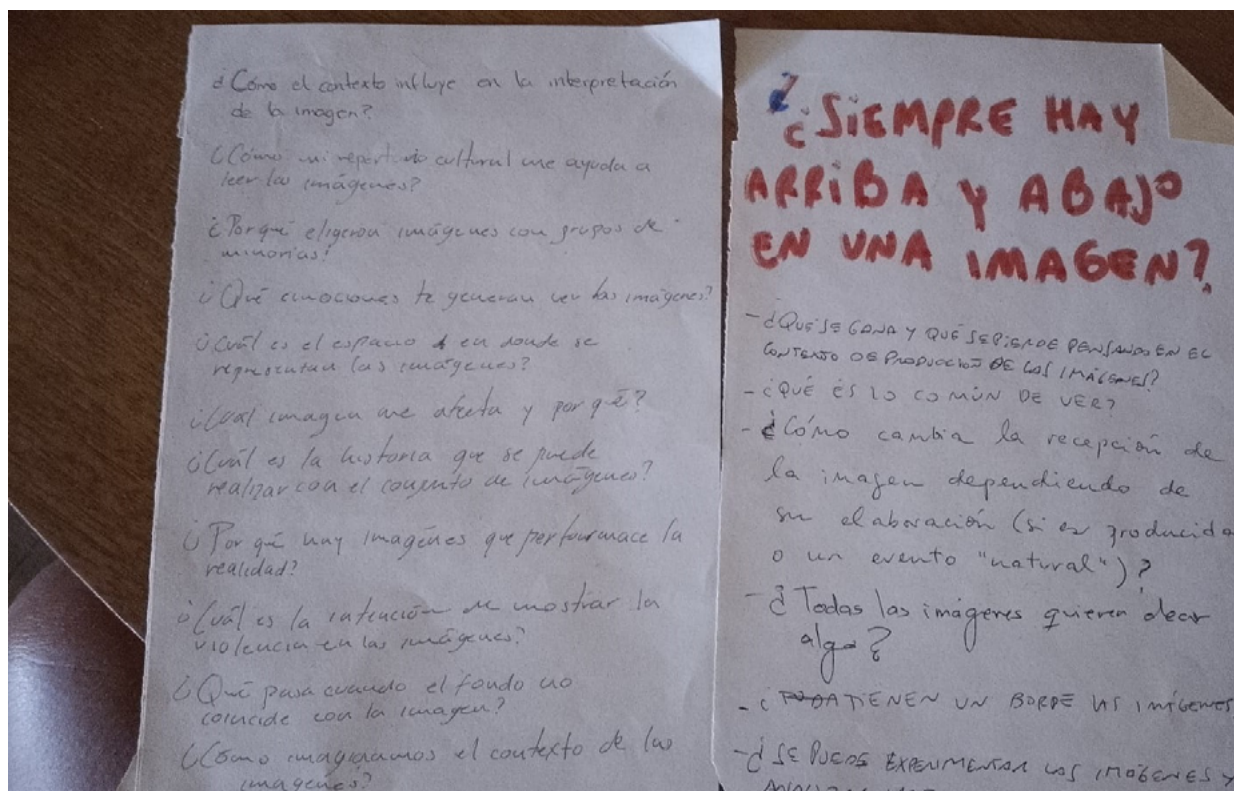 ¿Cómo el contexto influye en la interpretación
de la imagen?
¿Cómo mi repertorio cultural me ayuda a
leer las imágenes?
¿Porqué eligeron imágenes con grupos de
minorías?
¿Qué emociones te generan ver las imágenes?
¿Cuál es el espacio en donde se
representan las imágenes?
¿Cuál imagen me afecta y por qué?
¿Cuál es la historia que se puede
realizar con el conjunto de imágenes?
¿Por qué hay imágenes que performace la
realidad?
¿Cuál es la intención de mostrar la
violencia en las imágenes?
¿Qué pasa cuando el fondo no
coincide con la imagen?
¿Cómo imaginamos el contexto de las
imágenes?
¿SIEMPRE HAY
ARRIBA Y ABAJO
EN UNA IMAGEN?
- ¿QUÉ SE GANA Y QUÉ SE PIERDE PENSANDO EN EL
CONTEXTO DE PRODUCCIÓN DE LAS IMÁGENES?
- ¿QUÉ ES LO COMÚN DE VER?
- ¿Cómo cambia la recepción de
la imagen dependiendo de
su elaboración (si es producida
o un evento "natural")?
- ¿Todas las imágenes quieren decir
algo?
- ¿ TIENEN UN BORDE LAS IMÁGENES
- ¿SE PUEDE EXPERIMENTAR LAS IMÁGENES Y